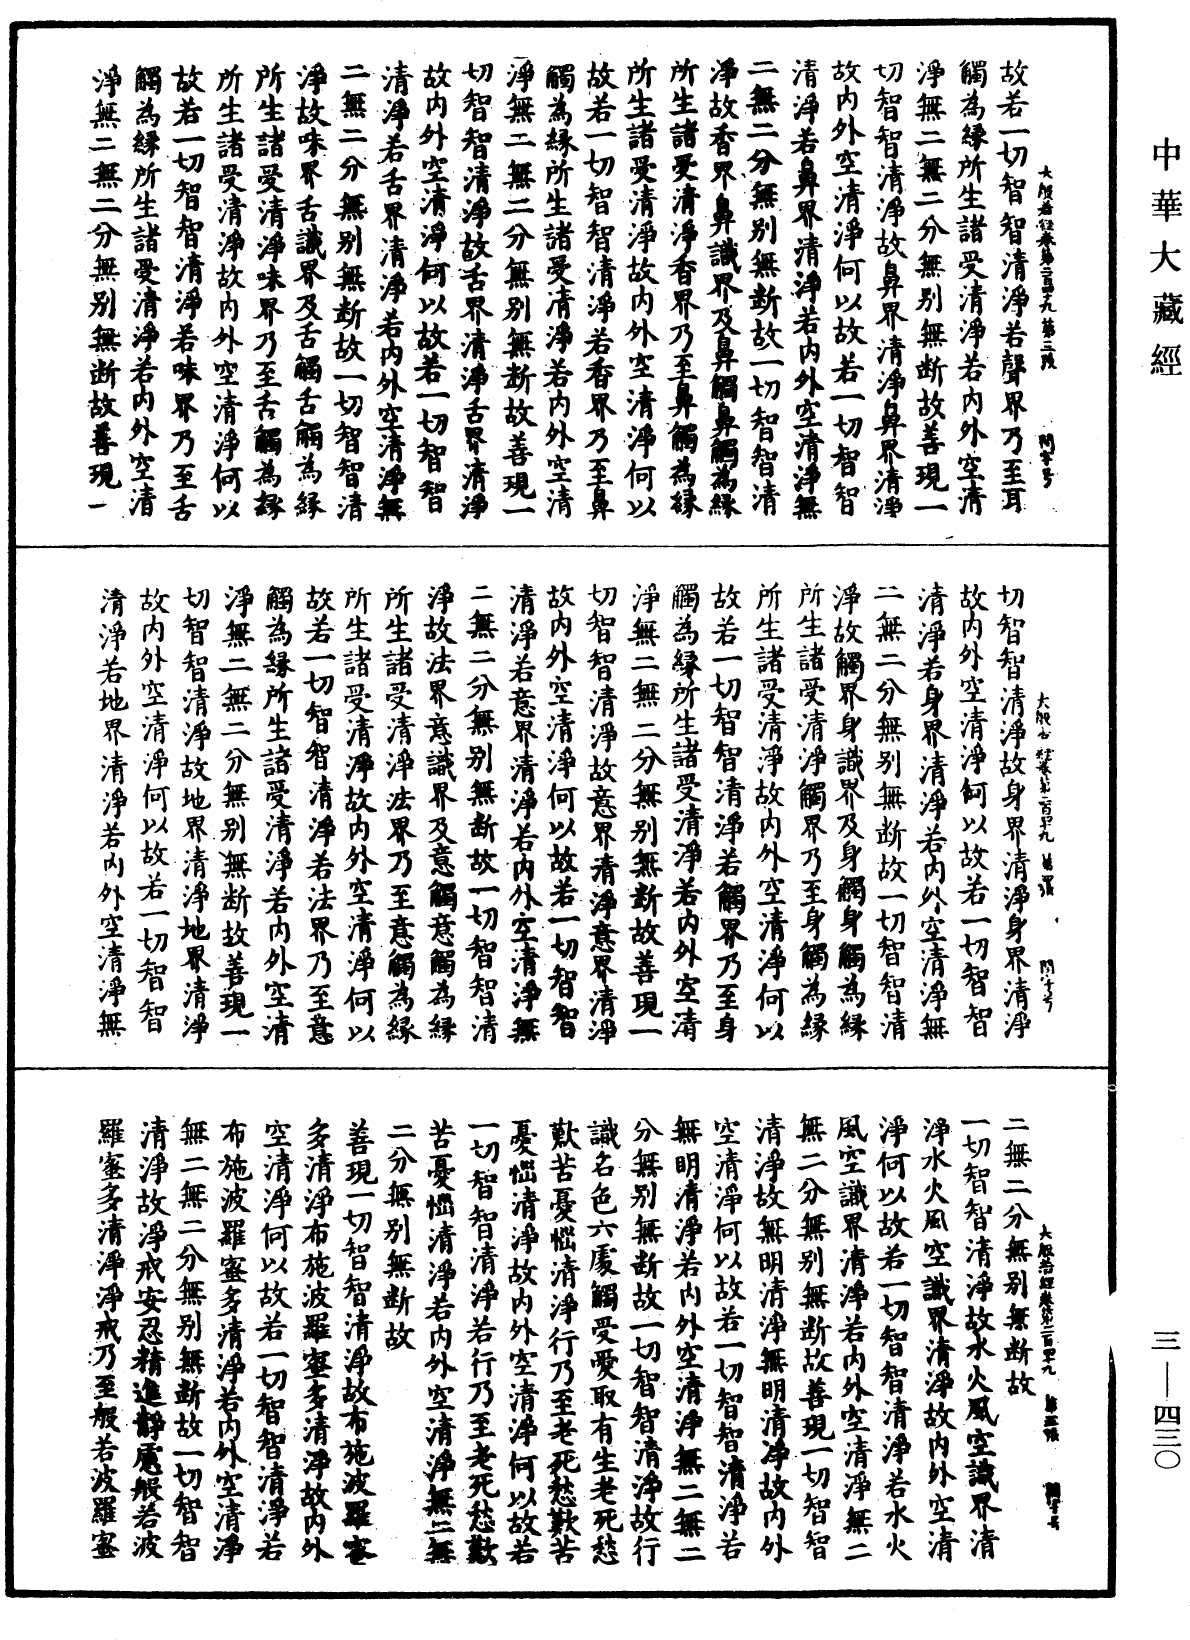 中華大藏經
故若一切智智清淨若聲界乃至耳
觸為緣所生諸受清淨若內外空清
淨無二無二分無別無断故善現一
切智智清淨故鼻界清淨鼻界清淨
故內外空清淨何以故若一切智智
清淨若鼻界清淨若內外空清淨無
二無二分無別無断故一切智智清
淨故香界鼻識界及鼻觸鼻觸為緣
所生諸受清淨香界乃至鼻觸為緣
所生諸受清淨故內外空清淨何以
故若一切智智清淨若香界乃至鼻
觸為緣所生諸受清淨若內外空清
淨無二無二分無別無断故善現一
切智智清淨故舌界清淨舌界清淨
故內外空清淨何以故若一切智智
清淨若舌界清淨若內外空清淨無
二無二分無別無断故一切智智清
淨故味界舌識界及舌觸舌觸為緣
所生諸受清淨味界乃至舌觸為緣
所生諸受清淨故內外空清淨何以
故若一切智智清淨若味界乃至舌
觸為緣所生諸受清淨若內外空清
淨無二無二分無別無断故善現一
切智智清淨故身界清淨身界清淨
故內外空清淨何以故若一切智智
清淨若身界清淨若內外空清淨無
二無二分無別無断故一切智智清
淨故觸界身識界及身觸身觸為緣
所生諸受清淨觸界乃至身觸為緣
所生諸受清淨故內外空清淨何以
故若一切智智清淨若觸界乃至身
觸為緣所生諸受清淨若內外空清
淨無二無二分無別無断故善現一
切智智清淨故意界清淨意界清淨
故內外空清淨何以故若一切智智
清淨若意界清淨若內外空清淨無
二無二分無別無断故一切智智清
淨故法界意識界及意觸意觸為緣
所生諸受清淨法界乃至意觸為緣
所生諸受清淨故內外空清淨何以
故若一切智智清淨若法界乃至意
觸為緣所生諸受清淨若內外空清
淨無二無二分無別無断故善現一
切智智清淨故地界清淨地界清淨
故內外空清淨何以故若一切智智
清淨若地界清淨若內外空清淨無
二無二分無別無断故
一切智智清淨故水火風空識界清
淨水火風空識界清淨故內外空清
淨何以故若一切智智清淨若水火
風空識界清淨若內外空清淨無二
無二分無別無断故善現一切智智
清淨故無明清淨無明清淨故內外
空清淨何以故若一切智智清淨若
無明清淨若內外空清淨無二無二
分無別無断故一切智智清淨故行
識名色六處觸受愛取有生老死愁
歎苦憂惱清淨行乃至老死愁歎苦
憂惱清淨故內外空清淨何以故若
一切智智清淨若行乃至老死愁歎
苦憂惱清淨若內外空清淨無二無
二分無別無断故
善現一切智智清淨故布施波羅蜜
多清淨布施波羅蜜多清淨故內外
空清淨何以故若一切智智清淨若
布施波羅蜜多清淨若內外空清淨
無二無二分無別無断故一切智智
清淨故淨戒安忍精進靜慮般若波
羅蜜多清淨淨戒乃至般若波羅蜜
三—四三〇